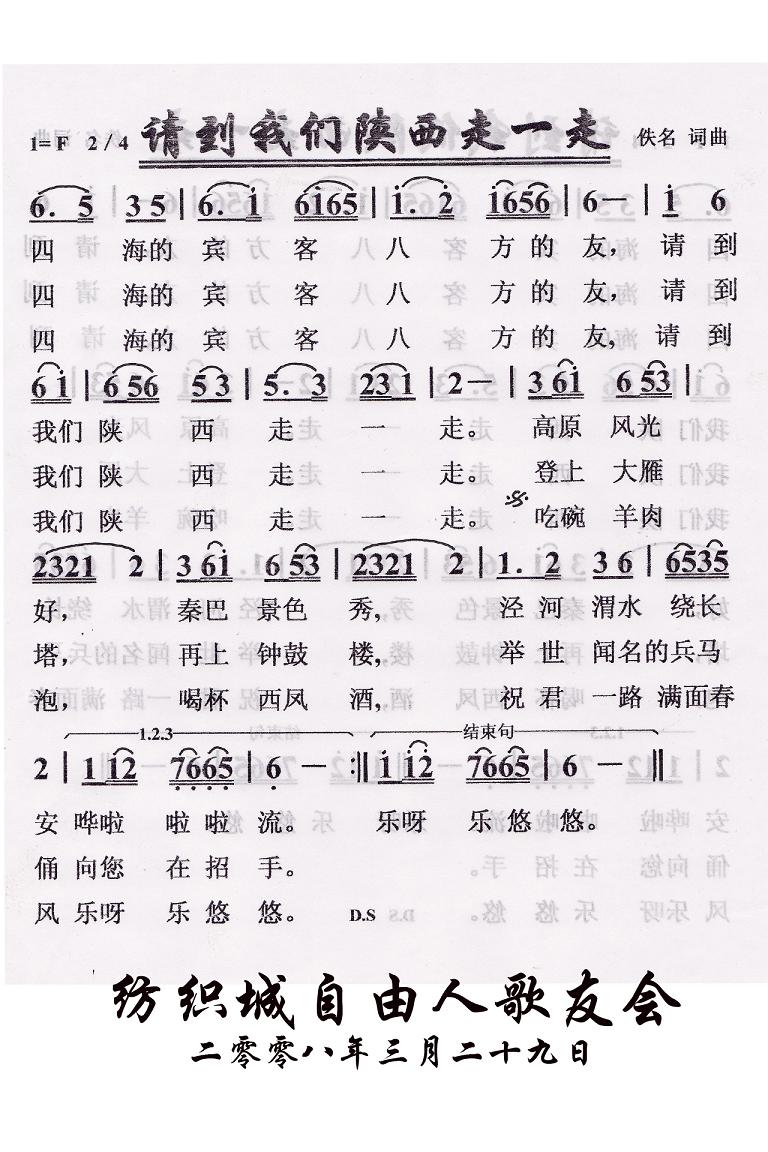 请到我们陕西走一走
1=F 2/4 佚名 词曲
6. 5 3 5 | 6. i 6i65 | i. 2 i656 | 6 — | i 6
四 海的 宾 客 八 方的 友, 请 到
四 海的 宾 客 八 方的 友, 请 到
四 海的 宾 客 八 方的 友, 请 到
6 i | 6 56 5 3 | 5. 3 231 | 2 — | 3 6i 6 53 |
我们 陕 西 走 一 走。 高原 风光
我们 陕 西 走 一 走。 登上 大雁
我们 陕 西 走 一 走。 吃碗 羊肉
2321 2 | 3 6i 6 53 | 2321 2 | 1. 2 3 6 | 6535
好, 秦巴 景色 秀, 泾 河 渭水 绕长
塔, 再上 钟鼓 楼, 举 世 闻名的兵马
泡, 喝杯 西风 酒, 祝 君 一路 满面春
1.2.3 结束句
2 | 1 12 7665 | 6 — :‖ i i2 7665 | 6 — ‖
安 哗啦 啦 啦 流。 乐呀 乐 悠 悠。
俑 向您 在 招 手。
风 乐呀 乐 悠 悠。 D.S
纺织城自由人歌友会
二零零八年三月二十九日